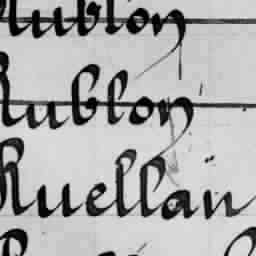 Rublon
Rublon
Ruellan